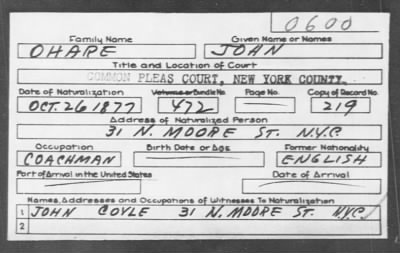 0600
Family Name Given Name or Names
OHARE JOHN
Title and Location of Court
COMMON PLEAS COURT, NEW YORK COUNTY.
Date of Naturalization Volume or Bundle No. Page No. Copy of Record No.
OCT. 26 1877 472 219
Address of Naturalized Person
31 N. MOORE ST. N.Y.C.
Occupation Birth Date or Age Former Nationality
COACHMAN ENGLISH
Port of Arrival in the United States Date of Arrival
Names, Addresses and Occupations of Witnesses To Naturalization
1 JOHN COYLE 31 N. MOORE ST. N.Y.C.
2